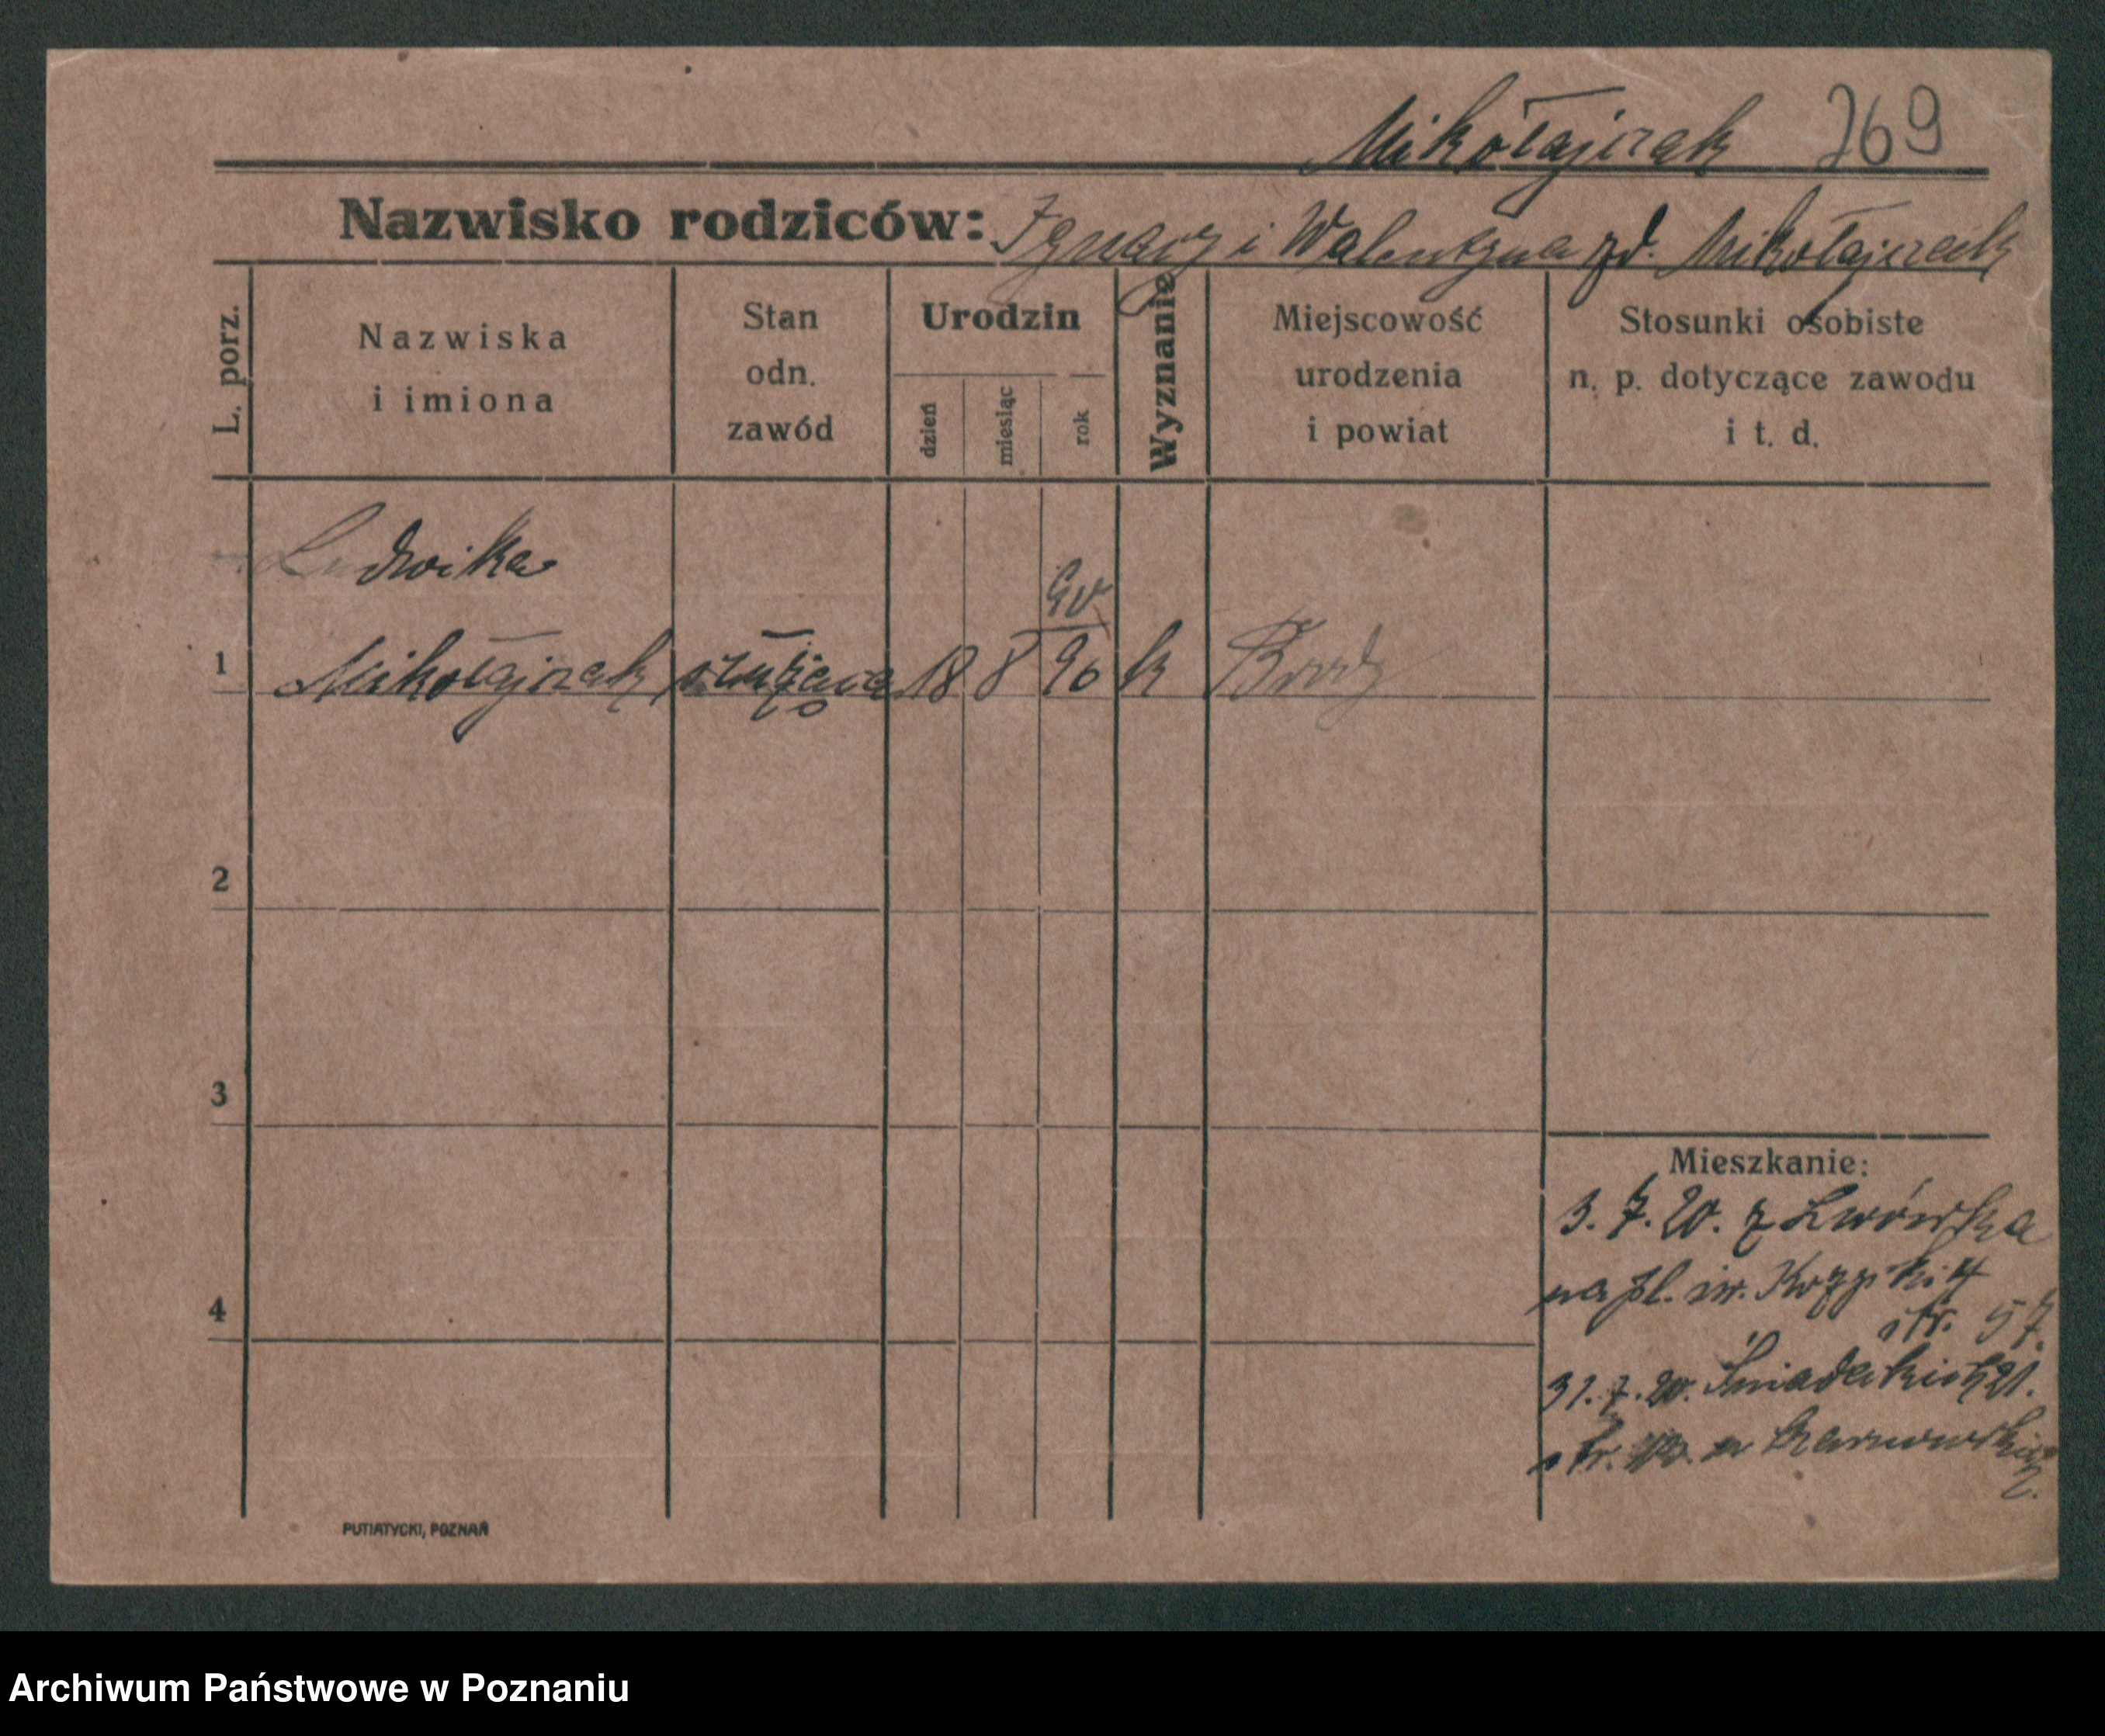 Mikołajczak 769
Nazwisko rodziców: Ignacy i Walentyna zd. Mikołajczak
L. porz.
Nazwiska
i imiona
Stan
odn.
zawód
Urodzin
dzień
miesiąc
rok
Wyznanie
Miejscowość
urodzenia
i powiat
Stosunki osobiste
n. p. dotyczące zawodu
i t. d.
Ludwika
20
1 Mikołajczak służąca 18 8 96 k Brody
2
3
4
Mieszkanie:
3. 7. 20. z Lwówka
na pl. św. Krzyski 4
str. 57.
31. 7. 20. Śniadeckich 21.
str.
PUTIATYCKI, POZNAŃ
Archiwum Państwowe w Poznaniu